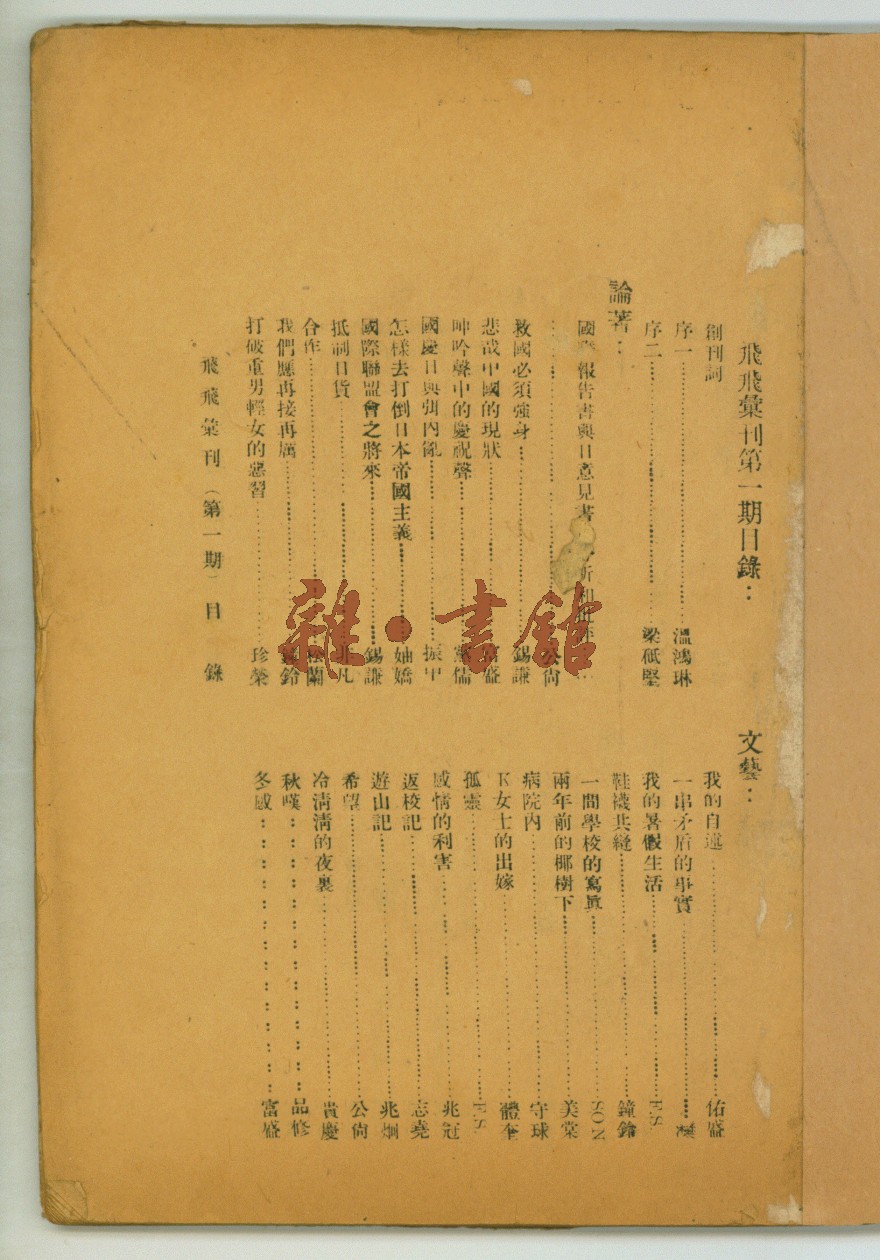 飛飛彙刊第一期目錄：
創刊詞
序一……溫鴻琳
序二……梁砥堅
論著：
國 報告書與日意見書
……公尙
救國必須強身……錫謙
悲哉中國的現狀……富盛
呻吟聲中的慶祝聲……黨儒
國慶日與弭內亂……振甲
怎樣去打倒日本帝國主義……妯嬌
國際聯盟會之將來……錫謙
抵制日貨……非凡
合作……松蘭
我們應再接再厲……鐘鈴
打破重男輕女的惡習……珍榮
飛飛彙刊（第一期）目 錄
文藝：
我的自述……佑盛
一串矛盾的事實……
我的暑假生活……F.S.
鞋襪共縫……鐘鈴
一間學校的寫眞……NOS
兩年前的椰樹下……美棠
病院內……守球
K女士的出嫁……體奎
孤靈……F.S.
感情的利害……兆冠
返校記……志堯
遊山記……兆炯
希望……公尙
冷清清的夜裏……貴慶
秋嘆……品修
冬感……富盛
雜·書館